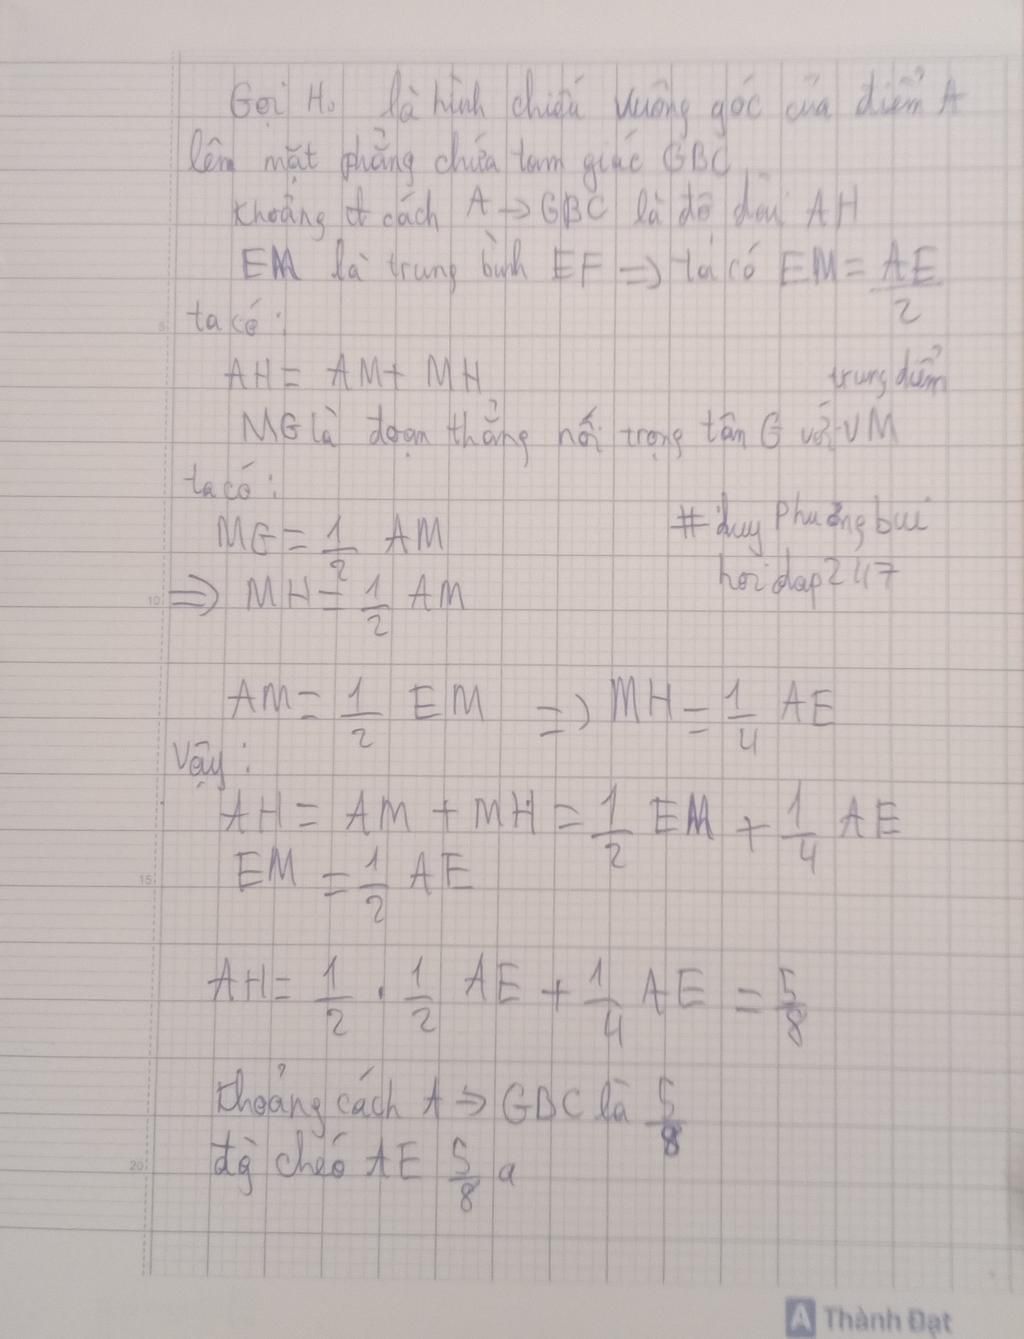 Gọi H. là hình chiếu vuông góc của điểm A
lên mặt phẳng chứa tam giác GBC
khoảng cách A → GBC là độ dài AH
EM là trung bình EF => ta có EM = AE/2
ta có:
AH = AM + MH
trung điểm
MG là đoạn thẳng nối trọng tân G với M
ta có:
MG = 1/2 AM
#duy Phương bui
hoidap247
10 => MH = 1/2 AM
AM = 1/2 EM => MH = 1/4 AE
Vậy:
AH = AM + MH = 1/2 EM + 1/4 AE
15 EM = 1/2 AE
AH = 1/2 . 1/2 AE + 1/4 AE = 5/8
khoảng cách A => GBC là 5/8
20 đg chéo AE 5/8 a
A Thành Đạt